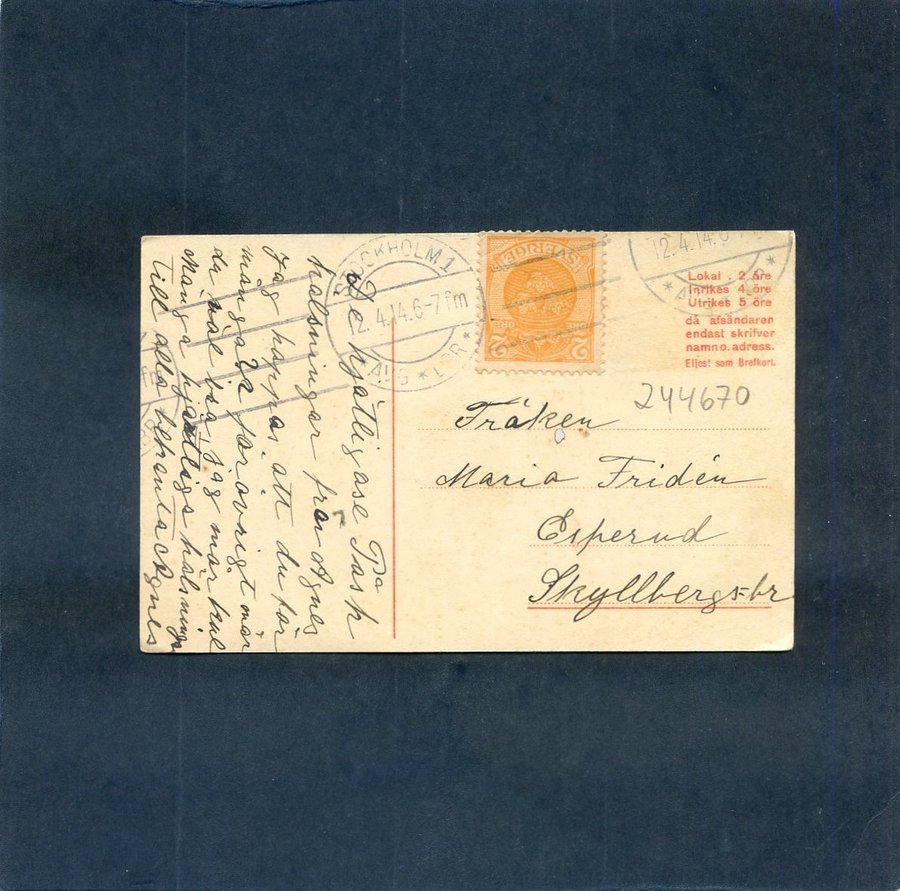 De hjätligase Påsk
halsningar från Agnes
Jag hoppas att du får
många för övrigt mår
du väl jag mår kul
Många hjätliga halsninga
till alla bekanta Agnes
STOCKHOLM 1
12.4.14.6-7 fm
AVG * LBR *
SVERIGE
2 2
12.4.14.6
Lokal . 2 öre
Inrikes 4 öre
Utrikes 5 öre
då afsändaren
endast skrifver
namn o. adress.
Eljest som Brefkort.
244670
Fröken
Maria Fridén
Esperud
Skyllbergsbr